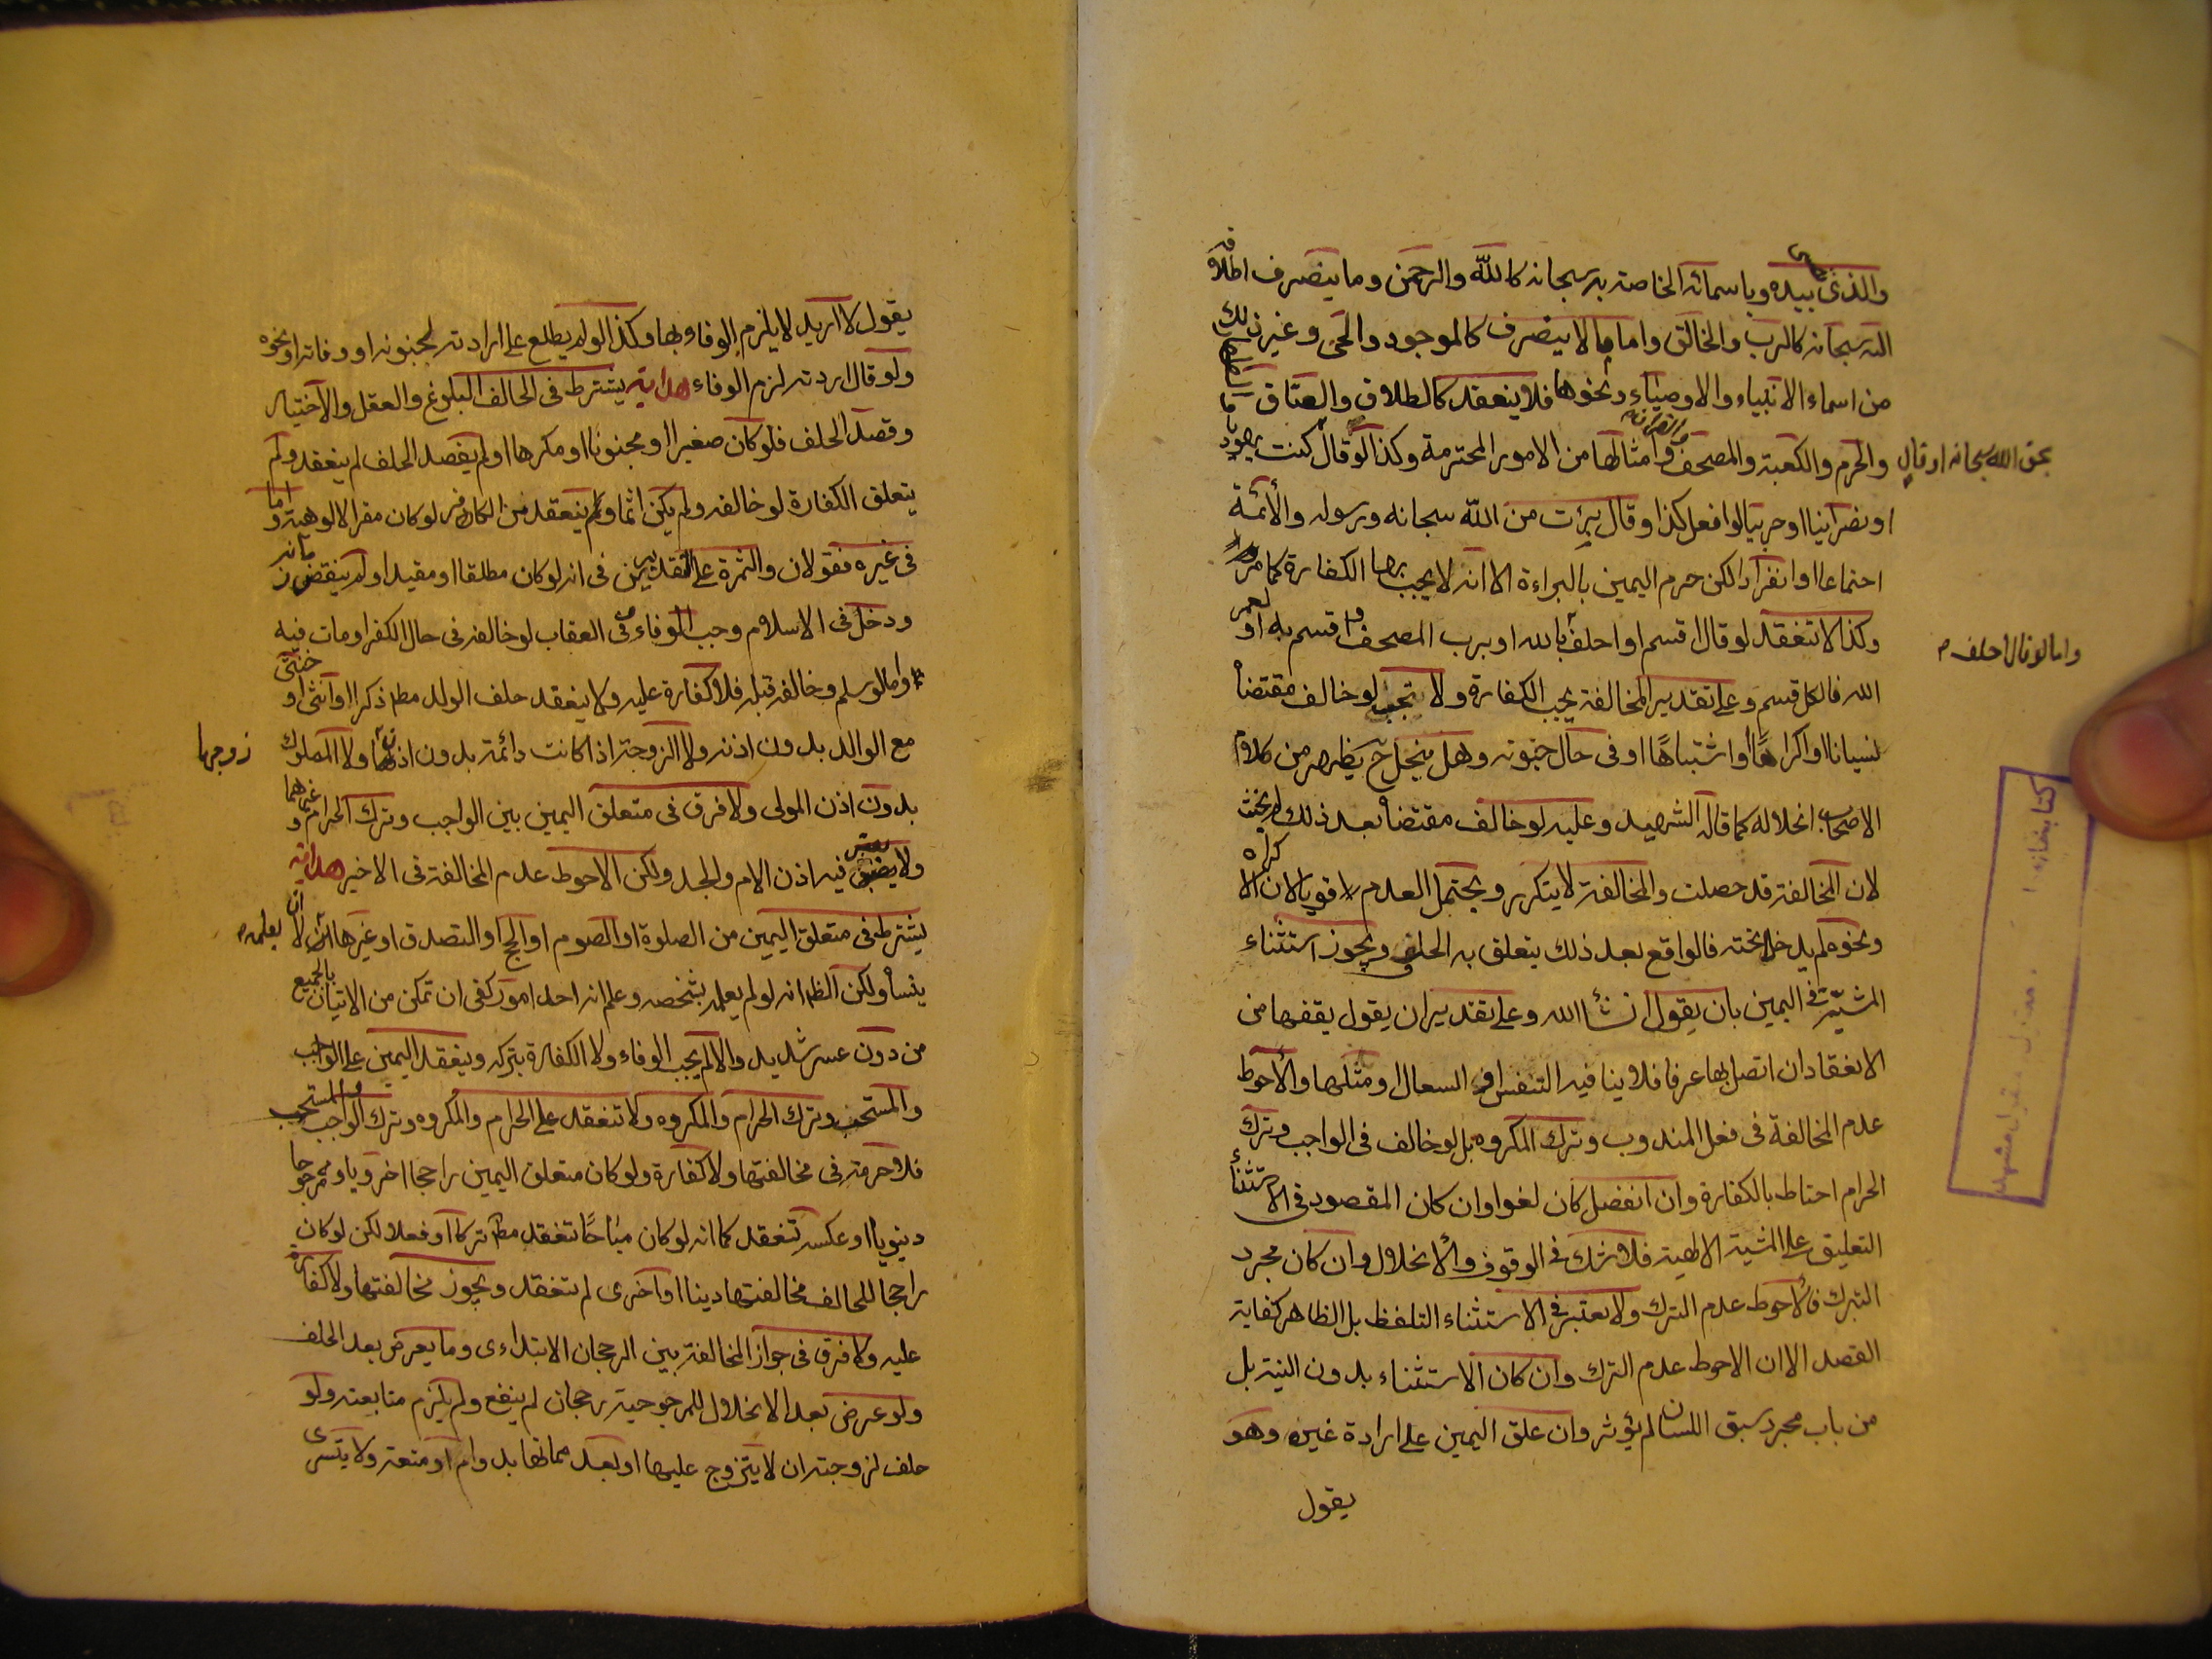 والذى نفسى بيده وباسمائه الخاصة به سبحانه كالله والرحمن وما ينصرف اطلاقه
اليه سبحانه كالرب والخالق واما ما لا ينصرف كالموجود والحى وغير ذلك
من اسماء الانبياء والاوصياء ونحوها فلا ينعقد كالطلاق والعتاق
والحرم والكعبة والمصحف والقران وامثالها من الامور المحترمة وكذا لو قال كنت يهوديا
بحق الله سبحانه او قال
او نصرانيا او حربيا لو افعل كذا وقال برئت من الله سبحانه ورسوله والأئمة
اجتماعا او انفرادا لكن حرم اليمين بالبراءة الا انه لا يجب بها الكفارة كما مر
وكذا لا تنعقد لو قال اقسم او احلف بالله او برب المصحف اقسم به او لعمر
واما لو قال احلف
الله فالكل قسم وعلى تقدير المخالفة يجب الكفارة ولا تجب لو خالف مقتضاه
نسيانا او اكراها او اشتباها او فى حال جنونه وهل ينحل ح يظهر من كلام
الاصحاب انحلاله كما قاله الشهيد وعليه لو خالف مقتضاه بعد ذلك لم يحنث
لان المخالفة قد حصلت والمخالفة لا يتكرر ويحتمل العدم قويا لان الاكراه
ونحوه لم يدخلا تحته فالواقع بعد ذلك يتعلق به الحلف ويجوز استثناء
المشية فى اليمين بان يقول انشاء الله وعلى تقدير ان يقول يقفها من
الانعقاد ان اتصل بها عرفا فلا ينافيه التنفس او السعال او مثلها والأحوط
عدم المخالفة فى فعل المندوب وترك المكروه بل لو خالف فى الواجب وترك
الحرام احتاط بالكفارة وان انفصل كان لغوا وان كان المقصود فى الاستثناء
التعليق على المشية الالهية فلا شك فى الوقوف والانحلال وان كان مجرد
التبرك فالاحوط عدم الترك ولا يعتبر فى الاستثناء التلفظ بل الظاهر كفاية
القصد الا ان الاحوط عدم الترك وان كان الاستثناء بدون النية بل
من باب مجرد سبق اللسان لم يؤثر وان علق اليمين على ارادة غيره وهو
يقول
يقول لا اريد لا يلزم الوفاء بها وكذا لو لم يطلع على ارادته لجنونه او وفاته او نحوه
ولو قال اردته لزم الوفاء هداية يشترط فى الحالف البلوغ والعقل والاختيار
وقصد الحلف فلو كان صغيرا او مجنونا او مكرها او لم يقصد الحلف لم ينعقد ولم
يتعلق الكفارة لو خالفه ولم يكن اثما ولم ينعقد من الكافر لو كان مقرا لالوهية واما
فى غيره فقولان والثمرة على التقديرين فى انه لو كان مطلقا او مقيدا ولم ينقض زمانه
ودخل فى الاسلام وجب الوفاء وفى العقاب لو خالفه فى حال الكفر او مات فيه
واما لو سلم وخالفه قبله فلا كفارة عليه ولا ينعقد حلف الولد مط ذكرا او انثى او خنثى
مع الوالد بدون اذنه ولا الزوجة اذا كانت دائمة بدون اذن ولا المملوك
زوجها
بدون اذن المولى ولا فرق فى متعلق اليمين بين الواجب وترك الحرام وغيرهما
ولا يعتبر فيه اذن الام والجد ولكن الاحوط عدم المخالفة فى الاخير هداية
يشترط فى متعلق اليمين من الصلوة او الصوم او الحج او التصدق او غيرها ان لا
يعلمه
ينسأ ولكن الظ انه لو لم يعلمه بشخصه وعلم انه احد امور كفى ان تمكن من الاتيان بالجميع
من دون عسر شديد والا لم يجب الوفاء ولا الكفارة بتركه وينعقد اليمين على الواجب
والمستحب وترك الحرام والمكروه ولا تنعقد على الحرام والمكروه وترك الواجب والمستحب
فلا حرمة فى مخالفتها ولا كفارة ولو كان متعلق اليمين راجحا اخرويا ومرجوحا
دنيويا او عكسه تنعقد كما انه لو كان مباحًا تنعقد مط تركا او فعلا لكن لو كان
راجحا للحالف مخالفتها دينا او اخرى لم تنعقد ويجوز مخالفتها ولا كفارة
عليه ولا فرق فى جواز المخالفة بين الرجحان الابتداءى وما يعرض بعد الحلف
ولو عرض بعد الانحلال للمرجوحية رجحان لم ينفع ولم يلزم متابعته ولو
حلف لزوجته ان لا يتزوج عليها او بعد مماتها بدوام او متعة ولا يتسرى